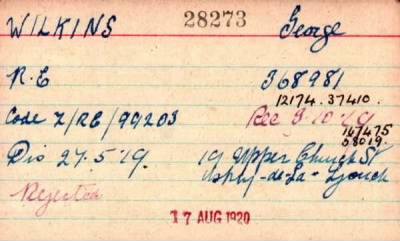 WILKINS 28273 George
R.E 368981
12174. 37410.
Code Z/RE/99203 Rec 3-10-19
167475
58019.
Dis 27.5.19. 19 Upper Church St
Ashby-de-la-Zouch
Rejected
17 AUG 1920